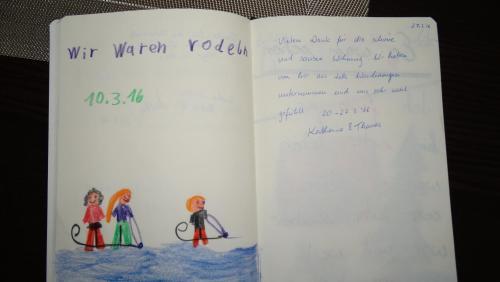 Wir Waren rodeln
10.3.16
Vielen Dank für die schöne
und saubere Wohnung. Wir haben
von hier aus viele Wanderungen
unternommen und uns sehr wohl
gefühlt.
Katharina & Thomas